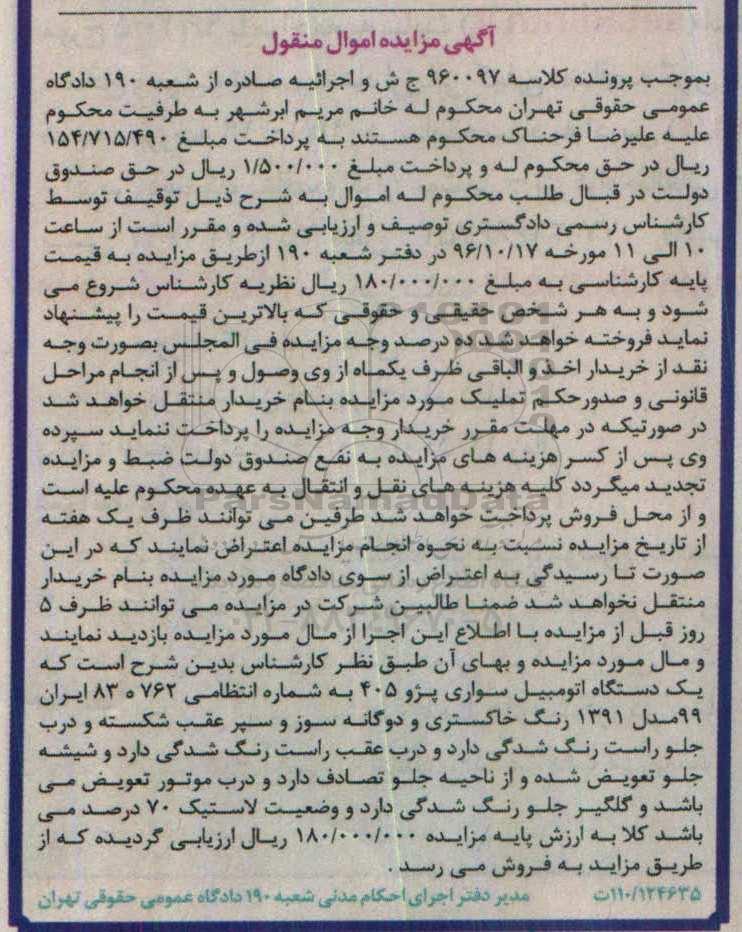 آگهی مزایده اموال منقول
بموجب پرونده کلاسه ۹۶۰۰۹۷ ج ش و اجرائیه صادره از شعبه ۱۹۰ دادگاه
عمومی حقوقی تهران محکوم له خانم مریم ابرشهر به طرفیت محکوم
علیه علیرضا فرحناک محکوم هستند به پرداخت مبلغ ۱۵۴/۷۱۵/۴۹۰
ریال در حق محکوم له و پرداخت مبلغ ۱/۵۰۰/۰۰۰ ریال در حق صندوق
دولت در قبال طلب محکوم له اموال به شرح ذیل توقیف توسط
کارشناس رسمی دادگستری توصیف و ارزیابی شده و مقرر است از ساعت
۱۰ الی ۱۱ مورخه ۹۶/۱۰/۱۷ در دفتر شعبه ۱۹۰ ازطریق مزایده به قیمت
پایه کارشناسی به مبلغ ۱۸۰/۰۰۰/۰۰۰ ریال نظریه کارشناس شروع می
شود و به هر شخص حقیقی و حقوقی که بالاترین قیمت را پیشنهاد
نماید فروخته خواهد شد ده درصد وجه مزایده فی المجلس بصورت وجه
نقد از خریدار اخذ و الباقی ظرف یکماه از وی وصول و پس از انجام مراحل
قانونی و صدورحکم تملیک مورد مزایده بنام خریدار منتقل خواهد شد
در صورتیکه در مهلت مقرر خریدار وجه مزایده را پرداخت ننماید سپرده
وی پس از کسر هزینه های مزایده به نفع صندوق دولت ضبط و مزایده
تجدید میگردد کلیه هزینه های نقل و انتقال به عهده محکوم علیه است
و از محل فروش پرداخت خواهد شد طرفین می توانند ظرف یک هفته
از تاریخ مزایده نسبت به نحوه انجام مزایده اعتراض نمایند که در این
صورت تا رسیدگی به اعتراض از سوی دادگاه مورد مزایده بنام خریدار
منتقل نخواهد شد ضمنا طالبین شرکت در مزایده می توانند ظرف ۵
روز قبل از مزایده با اطلاع این اجرا از مال مورد مزایده بازدید نمایند
و مال مورد مزایده و بهای آن طبق نظر کارشناس بدین شرح است که
یک دستگاه اتومبیل سواری پژو ۴۰۵ به شماره انتظامی ۷۶۲ ه ۸۳ ایران
۹۹مدل ۱۳۹۱ رنگ خاکستری و دوگانه سوز و سپر عقب شکسته و درب
جلو راست رنگ شدگی دارد و درب عقب راست رنگ شدگی دارد و شیشه
جلو تعویض شده و از ناحیه جلو تصادف دارد و درب موتور تعویض می
باشد و گلگیر جلو رنگ شدگی دارد و وضعیت لاستیک ۷۰ درصد می
باشد کلا به ارزش پایه مزایده ۱۸۰/۰۰۰/۰۰۰ ریال ارزیابی گردیده که از
طریق مزاید به فروش می رسد .
۱۱۰/۱۲۴۶۳۵ت مدیر دفتر اجرای احکام مدنی شعبه ۱۹۰ دادگاه عمومی حقوقی تهران
ParsNamadData